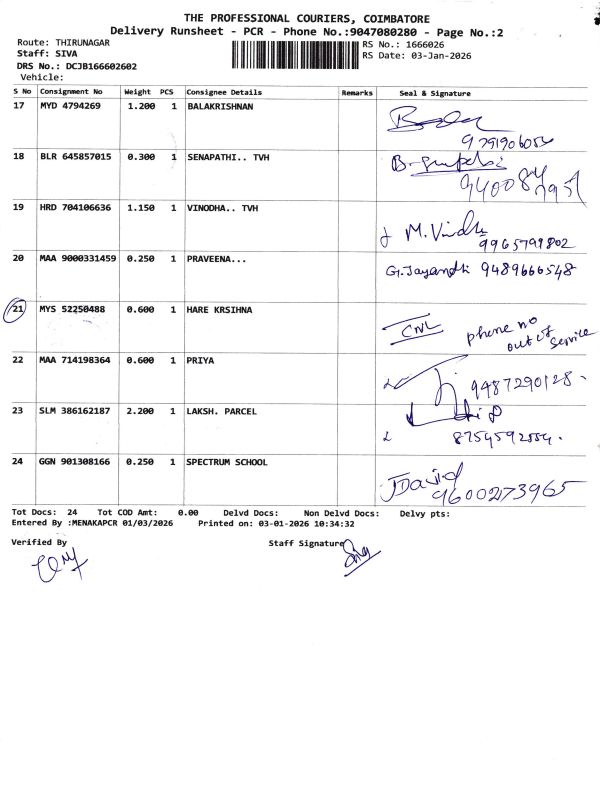 THE PROFESSIONAL COURIERS, COIMBATORE
Delivery Runsheet - PCR - Phone No.:9047080280 - Page No.:2
Route: THIRUNAGAR
RS No.: 1666026
Staff: SIVA
RS Date: 03-Jan-2026
DRS No.: DCJB166602602
Vehicle:
S No Consignment No Weight PCS Consignee Details Remarks Seal & Signature
17 MYD 4794269 1.200 1 BALAKRISHNAN
18 BLR 645857015 0.300 1 SENAPATHI.. TVH
19 HRD 704106636 1.150 1 VINODHA.. TVH
M.Vindh 9965799802
20 MAA 9000331459 0.250 1 PRAVEENA...
G.Jayandhi 9489666548
21 MYS 52250488 0.600 1 HARE KRSIHNA
CNL phone no out of service
22 MAA 714198364 0.600 1 PRIYA
9487290128.
23 SLM 386162187 2.200 1 LAKSH. PARCEL
8754592554.
24 GGN 901308166 0.250 1 SPECTRUM SCHOOL
JDavid 9600273965
Tot Docs: 24 Tot COD Amt: 0.00 Delvd Docs: Non Delvd Docs: Delvy pts:
Entered By :MENAKAPCR 01/03/2026 Printed on: 03-01-2026 10:34:32
Verified By Staff Signature